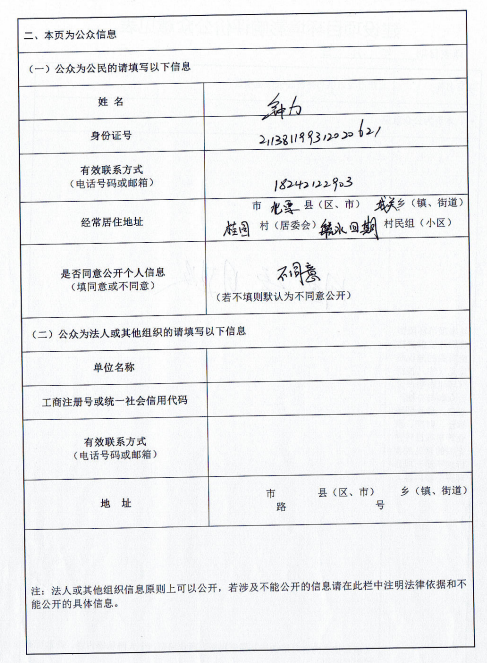 二、本页为公众信息
（一）公众为公民的请填写以下信息
姓 名
身份证号 211381199312020621
有效联系方式
（电话号码或邮箱） 18242122903
市 北票 县（区、市） 城关 乡（镇、街道）
经常居住地址 桂园 村（居委会） 村民组（小区）
是否同意公开个人信息
（填同意或不同意） 不同意
（若不填则默认为不同意公开）
（二）公众为法人或其他组织的请填写以下信息
单位名称
工商注册号或统一社会信用代码
有效联系方式
（电话号码或邮箱）
地 址
市 县（区、市） 乡（镇、街道）
路 号
注：法人或其他组织信息原则上可以公开，若涉及不能公开的信息请在此栏中注明法律依据和不
能公开的具体信息。